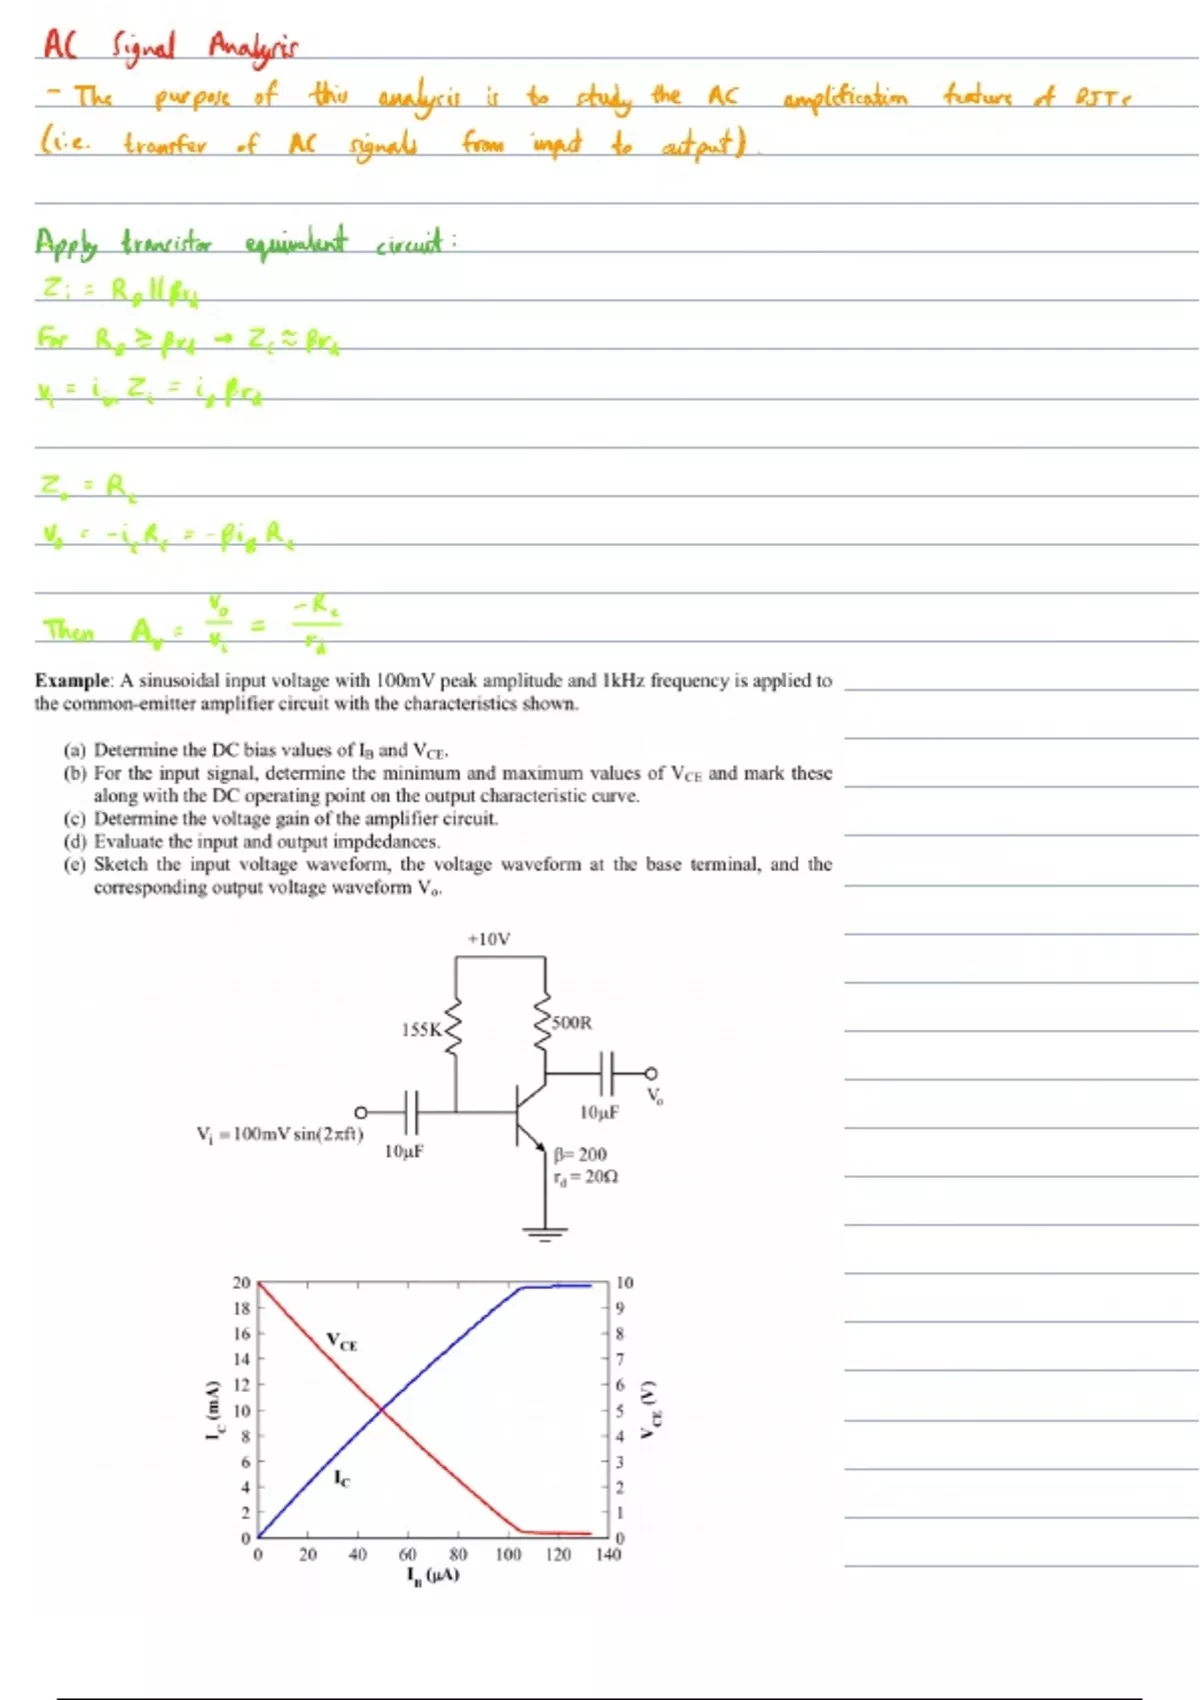 AC Signal Analysis
- The purpose of this analysis is to study the AC amplification feature of BJTs
(i.e. transfer of AC signals from input to output).
Apply transistor equivalent circuit:
Zi = RB||βrd
For RB ≥ βrd → Zi ≈ βrd
vi = iin Zi = iB βrd
Zo = Rc
Vo = -ic Rc = -βiB Rc
Then Av = vo/vi = -Rc/rd
Example: A sinusoidal input voltage with 100mV peak amplitude and 1kHz frequency is applied to
the common-emitter amplifier circuit with the characteristics shown.
(a) Determine the DC bias values of IB and VCE.
(b) For the input signal, determine the minimum and maximum values of VCE and mark these
along with the DC operating point on the output characteristic curve.
(c) Determine the voltage gain of the amplifier circuit.
(d) Evaluate the input and output impdedances.
(e) Sketch the input voltage waveform, the voltage waveform at the base terminal, and the
corresponding output voltage waveform Vo.
+10V
155K
500R
Vo
10μF
Vi = 100mV sin(2πft)
10μF
β= 200
rd = 20Ω
20 10
18 9
16 8
VCE
14 7
12 6
10 5
8 4
6 3
IC
4 2
2 1
0 0
IC (mA)
VCE (V)
0 20 40 60 80 100 120 140
IB (μA)